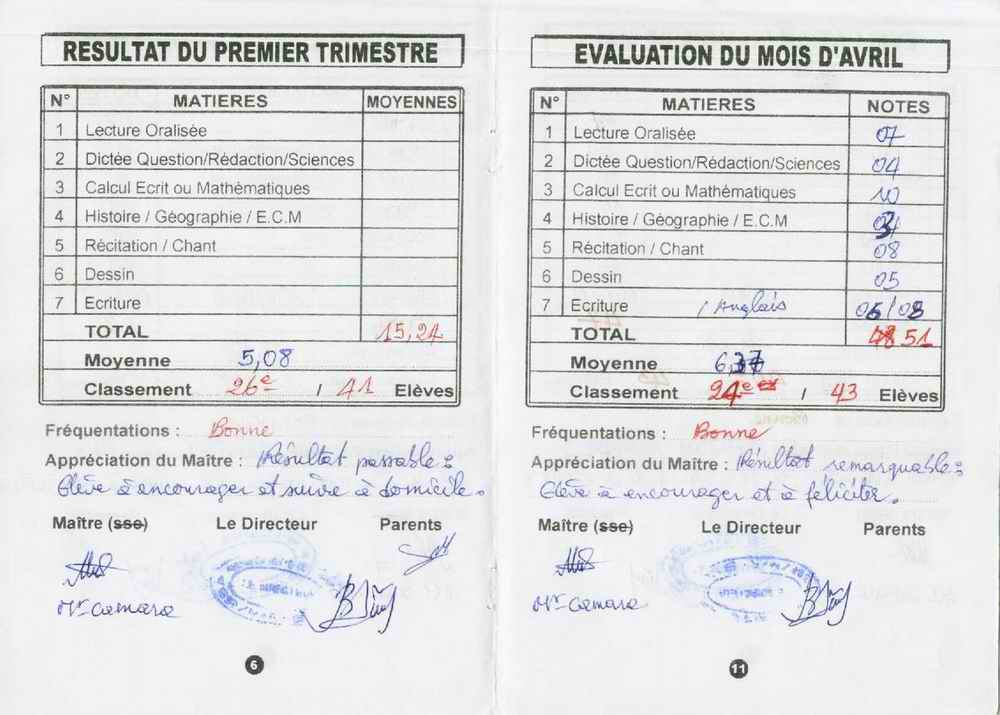 RESULTAT DU PREMIER TRIMESTRE
N° MATIERES MOYENNES
1 Lecture Oralisée
2 Dictée Question/Rédaction/Sciences
3 Calcul Ecrit ou Mathématiques
4 Histoire / Géographie / E.C.M
5 Récitation / Chant
6 Dessin
7 Ecriture
TOTAL 15,24
Moyenne 5,08
Classement 26e / 41 Elèves
Fréquentations : Bonne
Appréciation du Maître : Résultat passable :
Elève à encourager et suivre à domicile.
Maître (sse) Le Directeur Parents
Mr Camara
6
EVALUATION DU MOIS D'AVRIL
N° MATIERES NOTES
1 Lecture Oralisée 07
2 Dictée Question/Rédaction/Sciences 04
3 Calcul Ecrit ou Mathématiques 10
4 Histoire / Géographie / E.C.M 3
5 Récitation / Chant 08
6 Dessin 05
7 Ecriture / Anglais 06/08
TOTAL 48 51
Moyenne 6,37
Classement 24e / 43 Elèves
Fréquentations : Bonne
Appréciation du Maître : Résultat remarquable :
Elève à encourager et à féliciter.
Maître (sse) Le Directeur Parents
Mr Camara
11